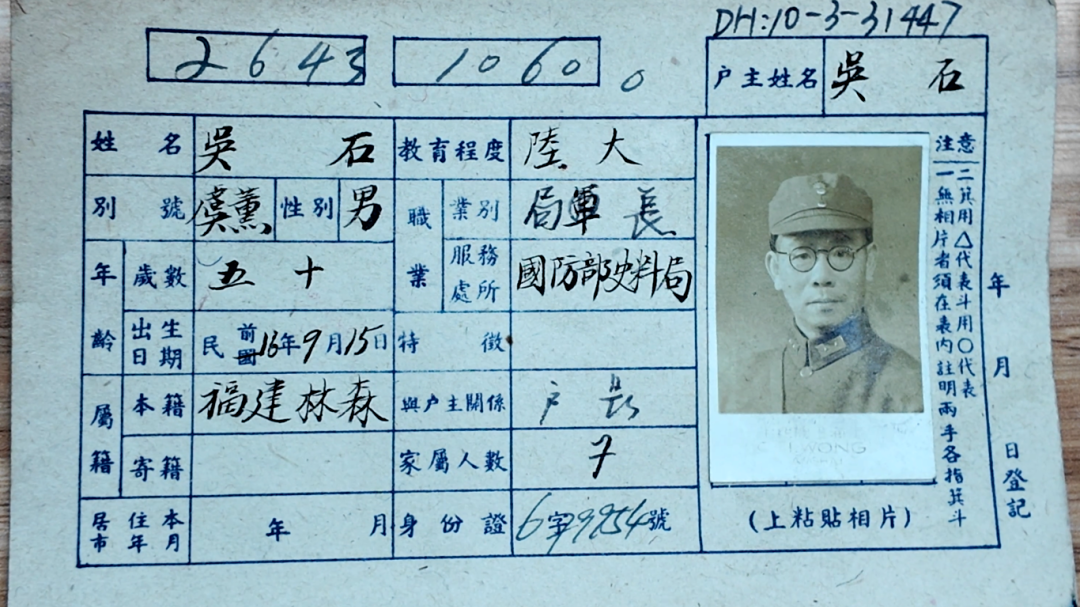 DH:10-3-31447
2643 1060 0
戶主姓名 吳石
姓名 吳石 教育程度 陸大
別號 虞薰 性別 男 職業 業別 軍 局長
年齡 歲數 五十 服務處所 國防部史料局
出生日期 民前國16年9月15日 特徵
屬籍 本籍 福建林森 與戶主關係 戶長
寄籍 家屬人數 7
居住本市年月 年 月 身份證 6字9954號
WONG
(上粘貼相片)
注意
一無相片者須在表內註明兩手各指箕斗
二箕用△代表斗用〇代表
年 月 日登記